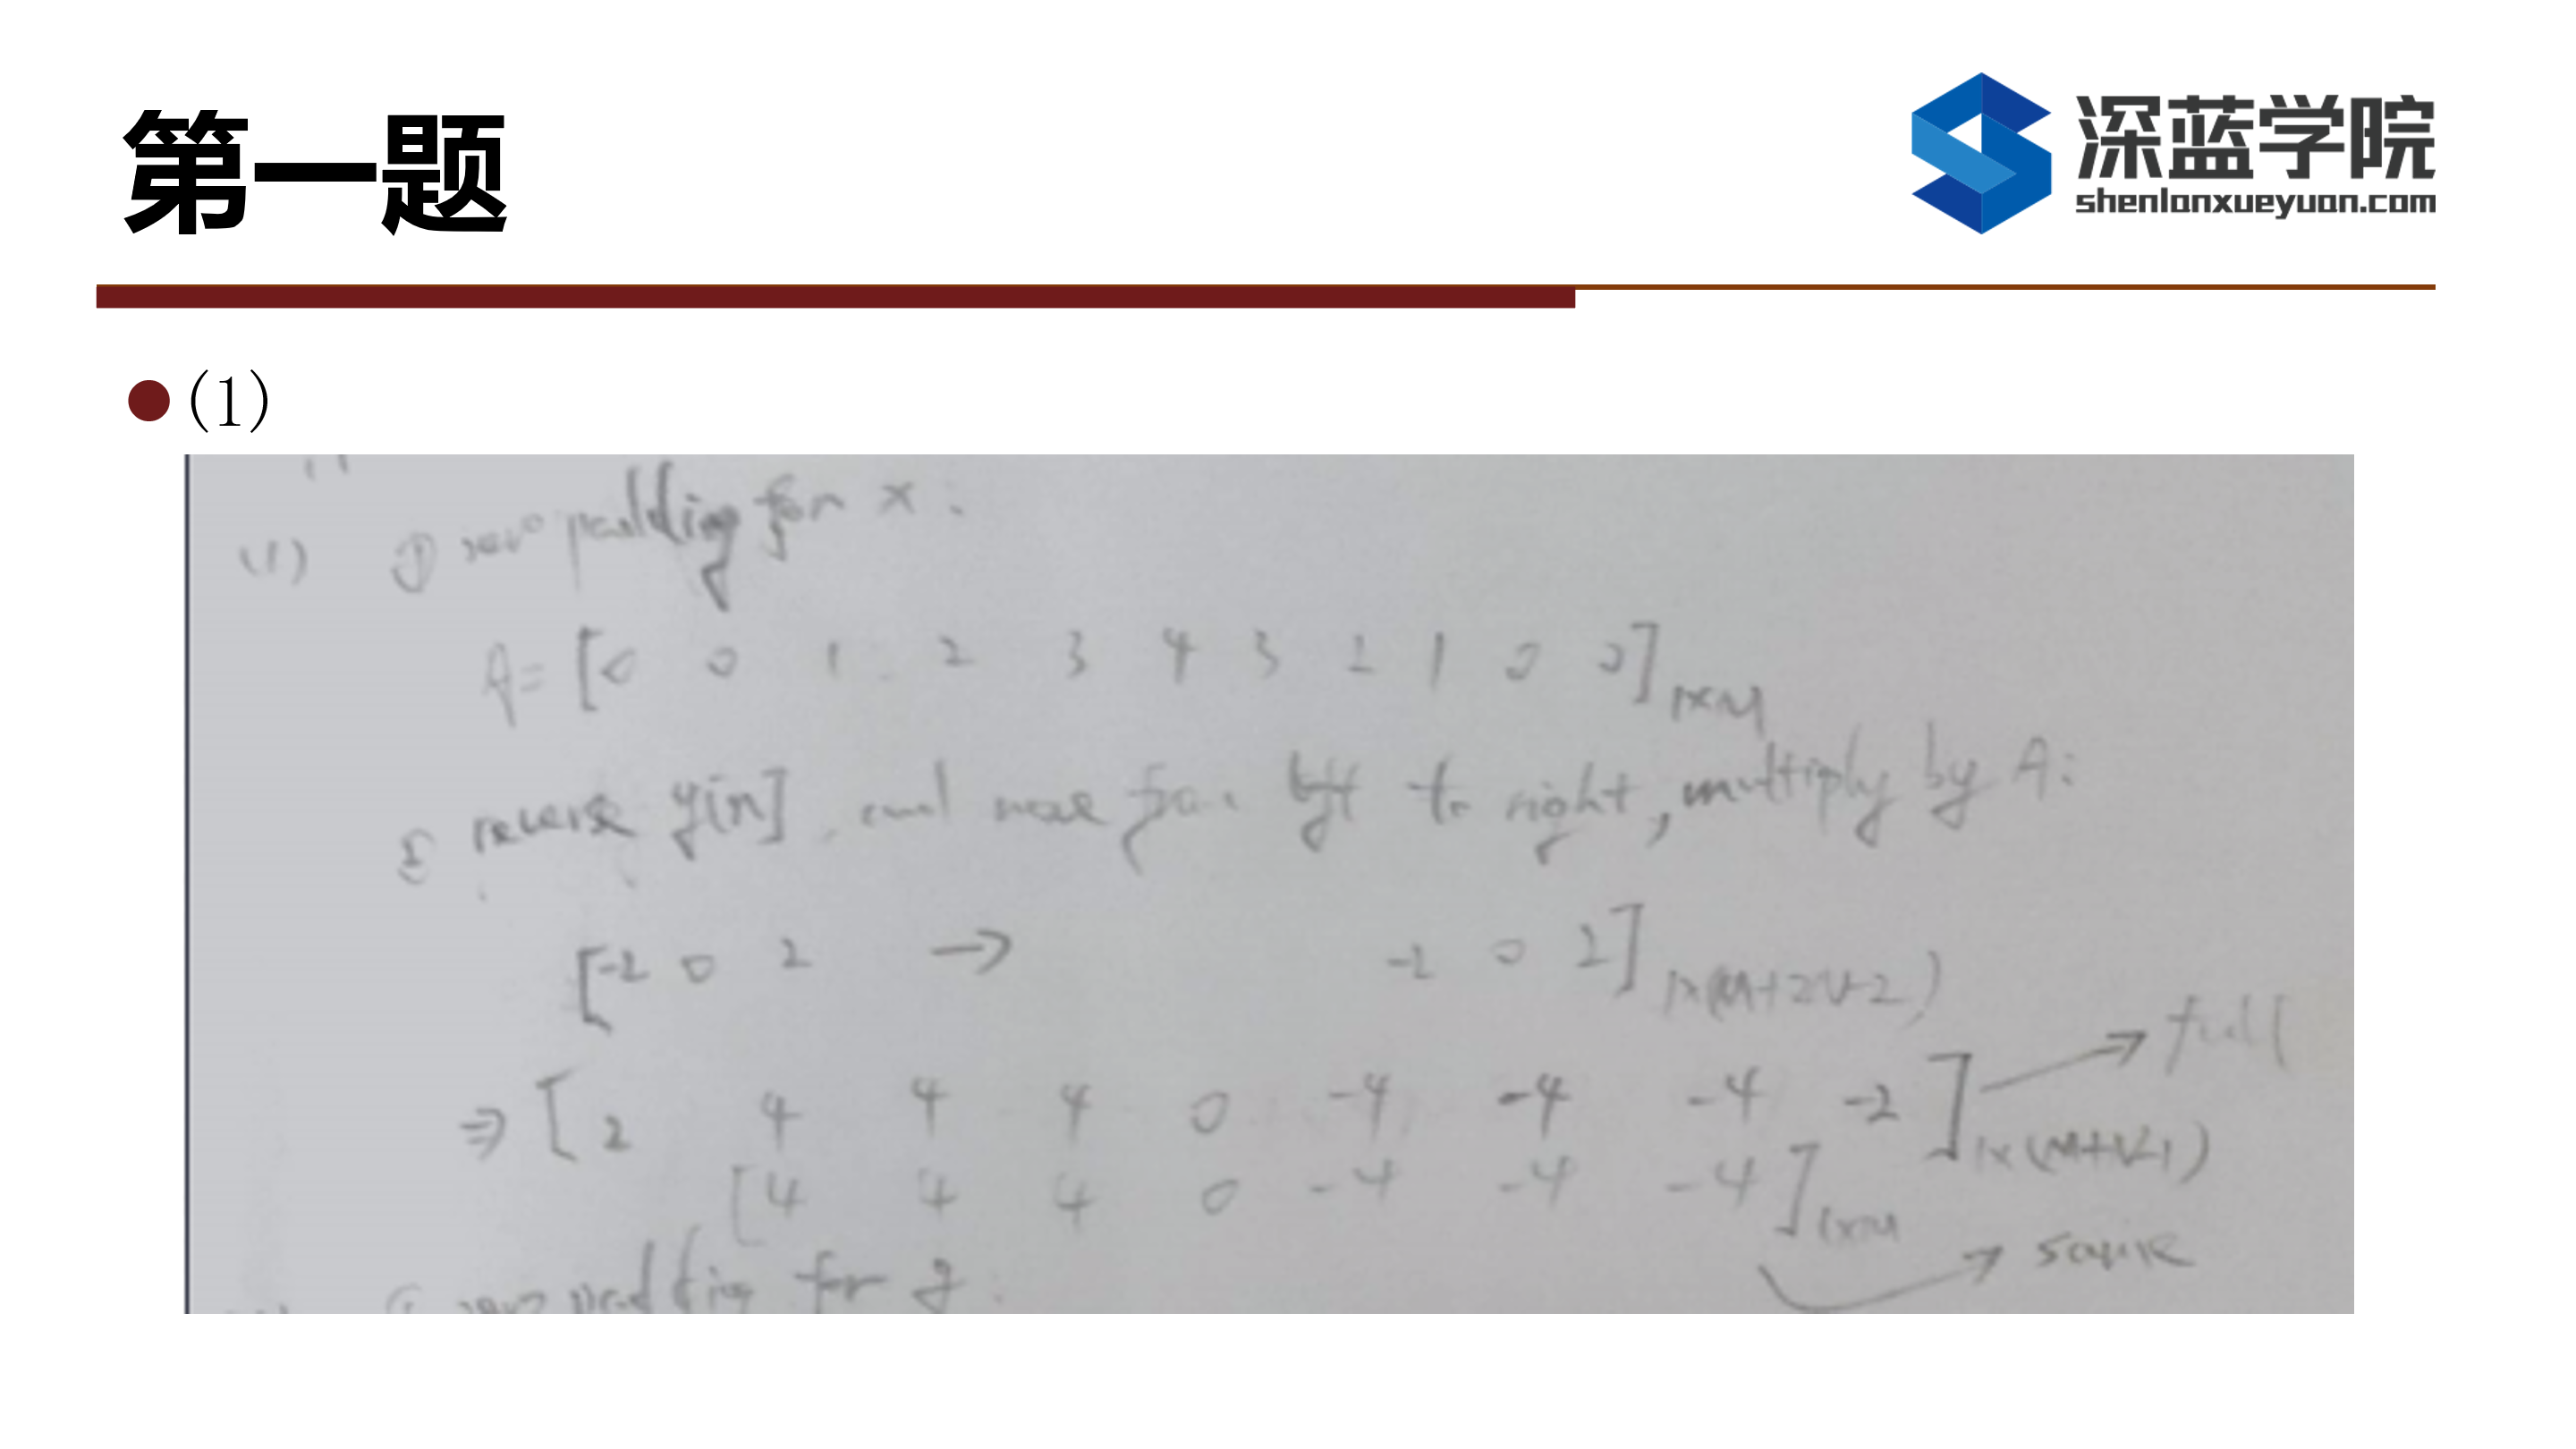 第一题
深蓝学院
shenlanxueyuan.com
(1)
(1) ① zero padding for x:
A= [0 0 1 2 3 4 3 2 1 0 0]1×M
② reverse y[n], and move from left to right, multiply by A:
[-2 0 2 → -2 0 2]1×(M+2N-2)
⇒ [2 4 4 4 0 -4 -4 -4 -2]1×(M+N-1) → full
[4 4 4 0 -4 -4 -4]1×M → same
zero padding for y: